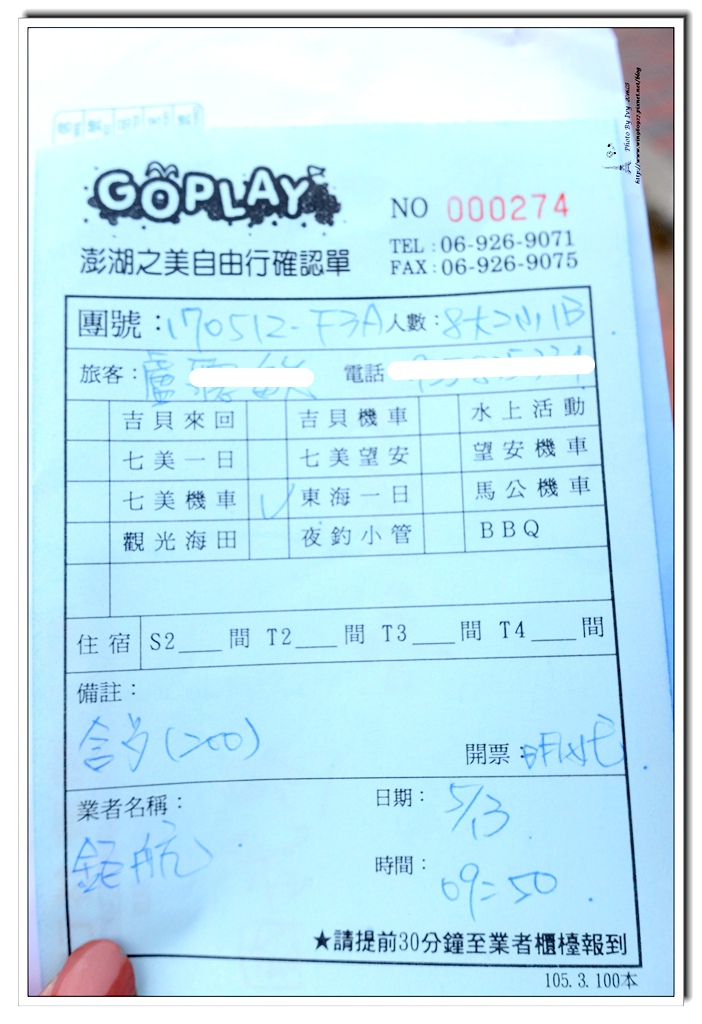 GOPLAY
NO 000274
TEL:06-926-9071
FAX:06-926-9075
澎湖之美自由行確認單
團號:170512-F3A 人數:8大2小1B
旅客:盧 電話
吉貝來回 吉貝機車 水上活動
七美一日 七美望安 望安機車
七美機車 ✓ 東海一日 馬公機車
觀光海田 夜釣小管 BBQ
住宿 S2___間 T2___間 T3___間 T4___間
備註:
(200)
開票:
業者名稱: 日期: 5/13
鉅航
時間: 09:50
★請提前30分鐘至業者櫃檯報到
105.3.100本
Photo By Ivy